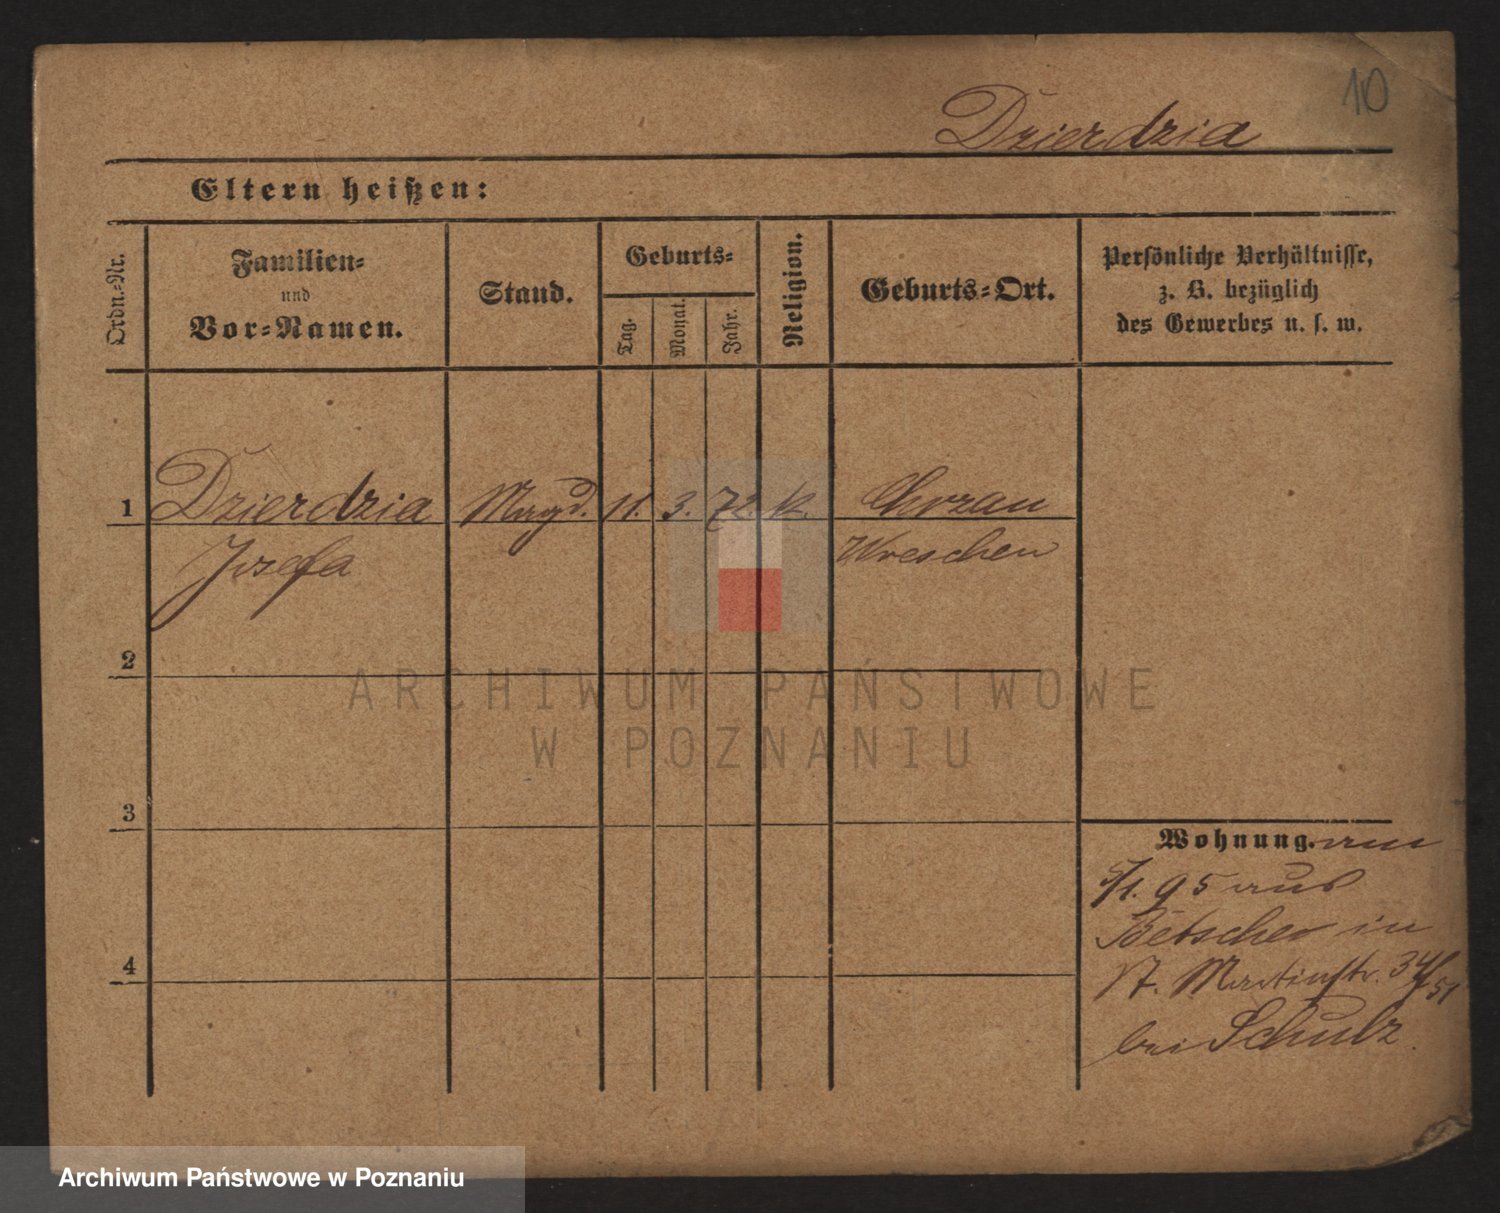 10
Dzierdzia
Eltern heißen:
Ordn.-Nr.
Familien-
und
Vor-Namen.
Stand.
Geburts-
Tag.
Monat.
Jahr.
Religion.
Geburts-Ort.
Persönliche Verhältnisse,
z. B. bezüglich
des Gewerbes u. s. w.
1 Dzierdzia Magd. 11. 3. 72. k. Chrzan
Josefa Wreschen
2
ARCHIWUM PAŃSTWOWE
W POZNANIU
3
Wohnung. am
/1. 95 aus
Betschen in
St. Martinstr. 34/51
bei Schulz.
4
Archiwum Państwowe w Poznaniu